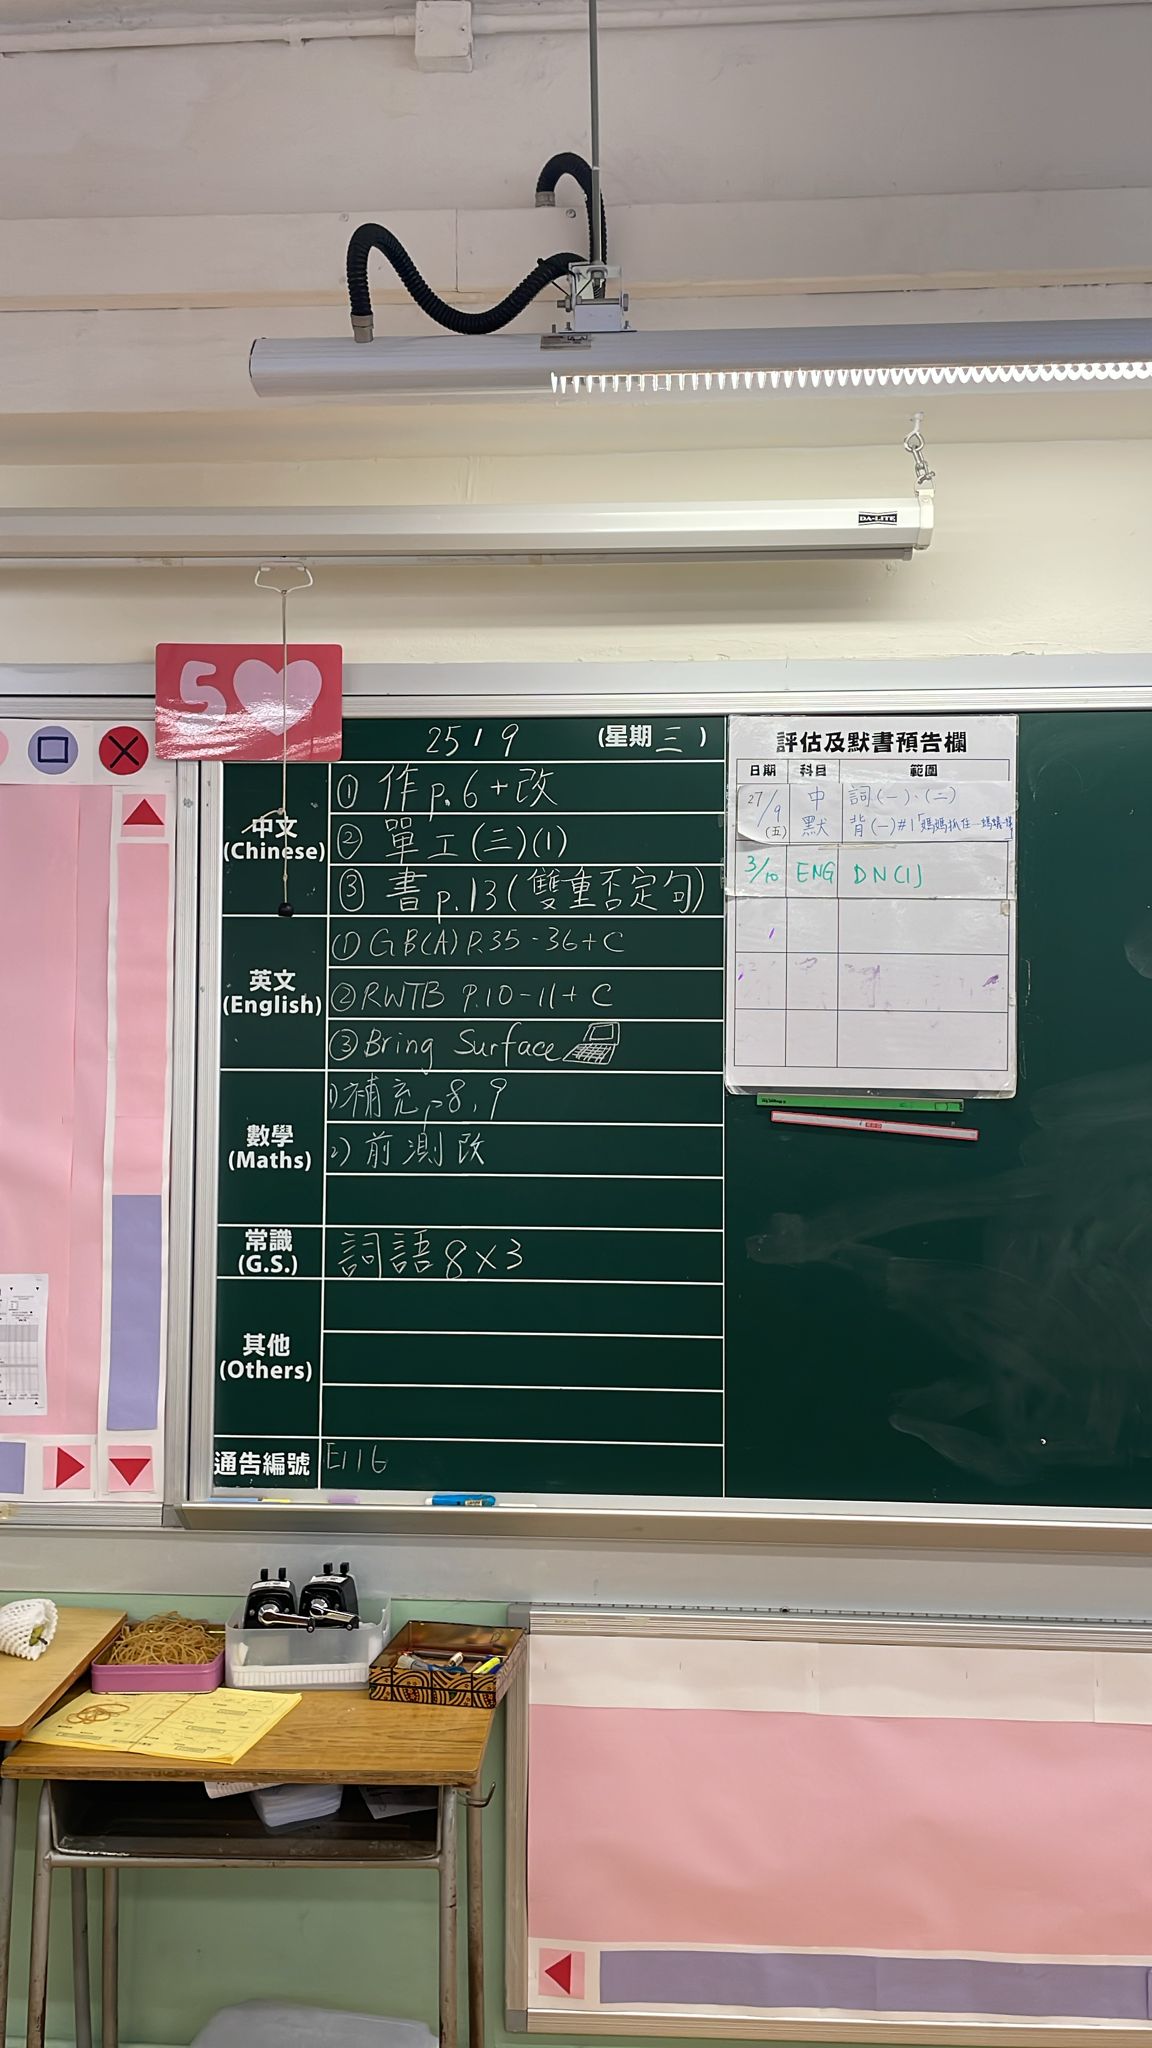 DA-LITE
5
25/9 (星期三)
中文
(Chinese)
① 作 p.6+改
② 單工(三)(1)
③ 書 p.13(雙重否定句)
英文
(English)
① GB(A) P.35-36+C
② RWTB P.10-11+C
③ Bring Surface
數學
(Maths)
1) 補充 p8,9
2) 前測改
常識
(G.S.)
詞語8×3
其他
(Others)
通告編號 E116
評估及默書預告欄
日期 科目 範圍
27/9 (五) 中默 詞(一)、(二)
背(一)#1「媽媽抓住
3/10 ENG DN(1)